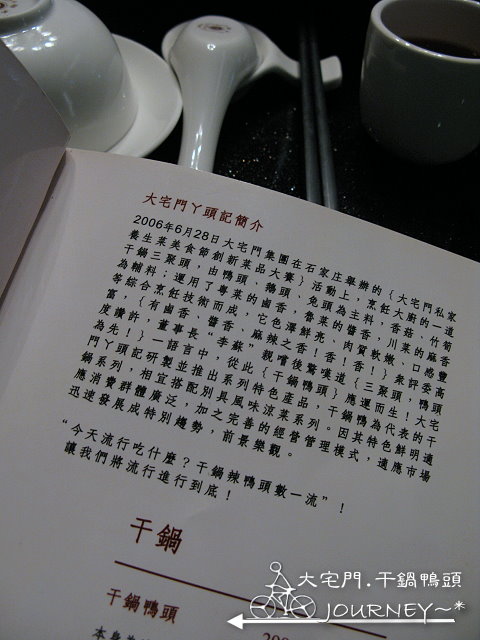 大宅門丫頭記簡介
2006年6月28日大宅門集團在石家庄舉辦的{大宅門私家
養生菜美食節創新菜品大賽}活動上，烹飪大廚的一道
干鍋三聚頭，由鴨頭、鵝頭、兔頭為主料，香菇、竹筍
為輔料；運用了粵菜的鹵香，魯菜的醬香，川菜的麻香
等綜合烹飪技術而成，它色澤鮮亮、肉質軟嫩、口感豐
富，{有鹵香、醬香、麻辣之香！香！香！}眾評委高
度讚許，董事長"李蘇"親嚐後驚嘆道{三聚頭，鴨頭
為先！}一語言中，從此{干鍋鴨頭}應運而生！大宅
門丫頭記研製並推出系列特色產品，干鍋鴨為代表的干
鍋系列，相宜搭配別具風味涼菜系列。因其特色鮮明適
應消費群體廣泛，加之完善的經營管理模式，適應市場
迅速發展成特別趨勢，前景樂觀。
“今天流行吃什麼？干鍋辣鴨頭數一流”！
讓我們將流行進行到底！
干鍋
干鍋鴨頭
大宅門.干鍋鴨頭
JOURNEY～*